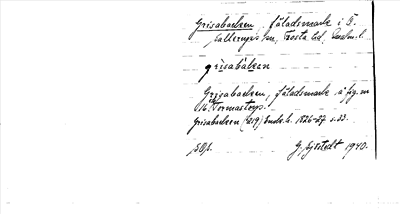 Grisabacken, fäladsmark i Ö.
Sallerups sn, Frosta hd, Malm. l.
grisabaken
Grisabacken, fäladsmark å fg. m
16 Tormastorp.
Grisabacken (419) Ensk. h. 1826-27 s. 33.
G. Sjöstedt 1940.